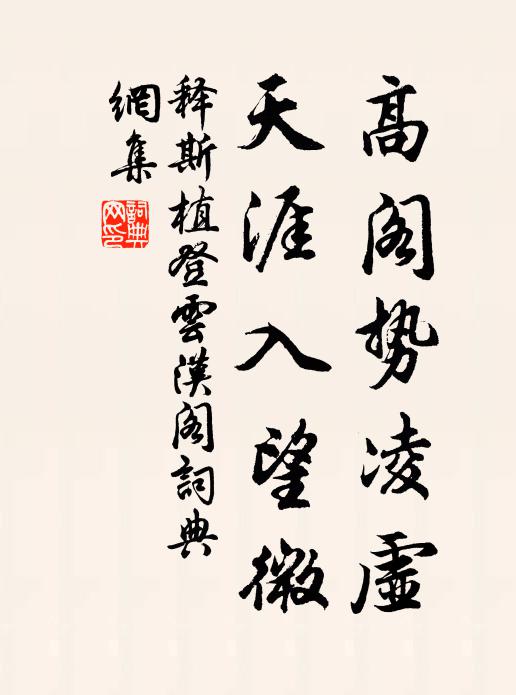 高阁势凌虚
天涯入望微
释斯植登雲漢阁詞典
網集
詞典
网印